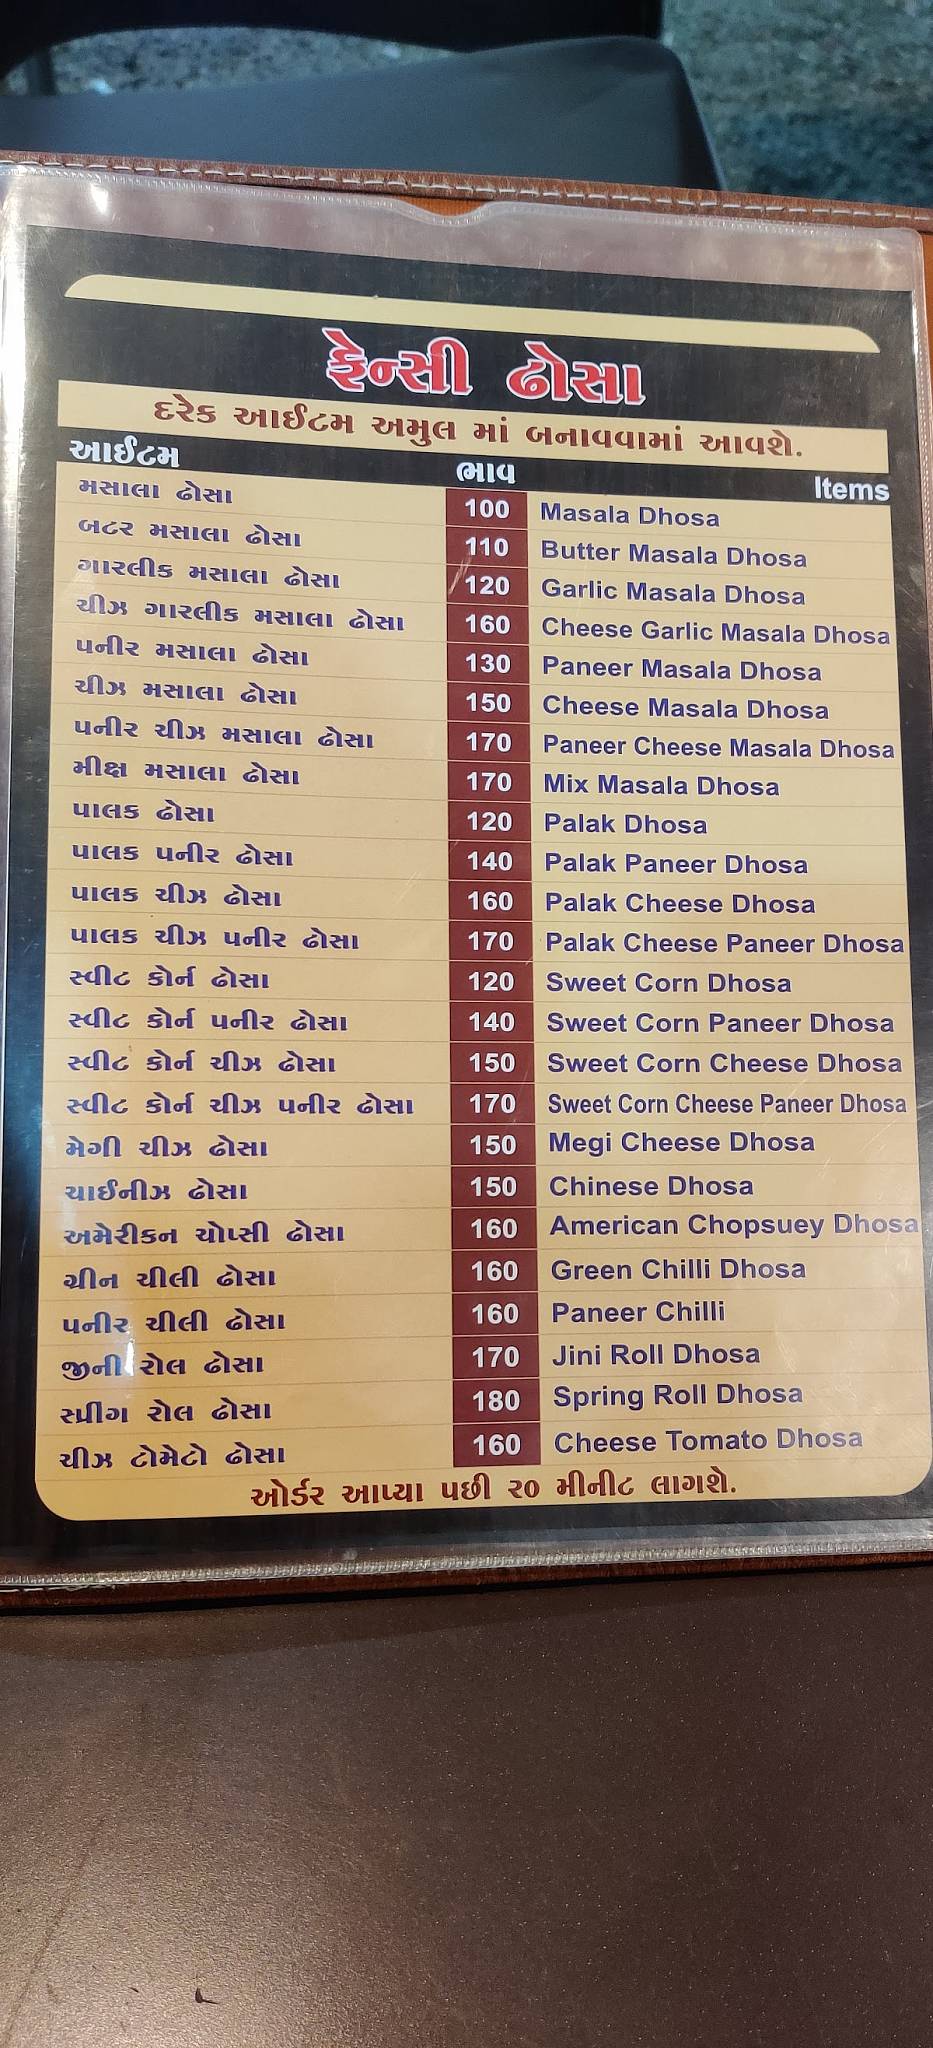 ફેન્સી ઢોસા
દરેક આઈટમ અમુલ માં બનાવવામાં આવશે.
આઈટમ ભાવ Items
મસાલા ઢોસા 100 Masala Dhosa
બટર મસાલા ઢોસા 110 Butter Masala Dhosa
ગારલીક મસાલા ઢોસા 120 Garlic Masala Dhosa
ચીઝ ગારલીક મસાલા ઢોસા 160 Cheese Garlic Masala Dhosa
પનીર મસાલા ઢોસા 130 Paneer Masala Dhosa
ચીઝ મસાલા ઢોસા 150 Cheese Masala Dhosa
પનીર ચીઝ મસાલા ઢોસા 170 Paneer Cheese Masala Dhosa
મીક્ષ મસાલા ઢોસા 170 Mix Masala Dhosa
પાલક ઢોસા 120 Palak Dhosa
પાલક પનીર ઢોસા 140 Palak Paneer Dhosa
પાલક ચીઝ ઢોસા 160 Palak Cheese Dhosa
પાલક ચીઝ પનીર ઢોસા 170 Palak Cheese Paneer Dhosa
સ્વીટ કોર્ન ઢોસા 120 Sweet Corn Dhosa
સ્વીટ કોર્ન પનીર ઢોસા 140 Sweet Corn Paneer Dhosa
સ્વીટ કોર્ન ચીઝ ઢોસા 150 Sweet Corn Cheese Dhosa
સ્વીટ કોર્ન ચીઝ પનીર ઢોસા 170 Sweet Corn Cheese Paneer Dhosa
મેગી ચીઝ ઢોસા 150 Megi Cheese Dhosa
ચાઈનીઝ ઢોસા 150 Chinese Dhosa
અમેરીકન ચોપ્સી ઢોસા 160 American Chopsuey Dhosa
ગ્રીન ચીલી ઢોસા 160 Green Chilli Dhosa
પનીર ચીલી ઢોસા 160 Paneer Chilli
જીની રોલ ઢોસા 170 Jini Roll Dhosa
સ્પ્રીંગ રોલ ઢોસા 180 Spring Roll Dhosa
ચીઝ ટોમેટો ઢોસા 160 Cheese Tomato Dhosa
ઓર્ડર આપ્યા પછી ૨૦ મીનીટ લાગશે.